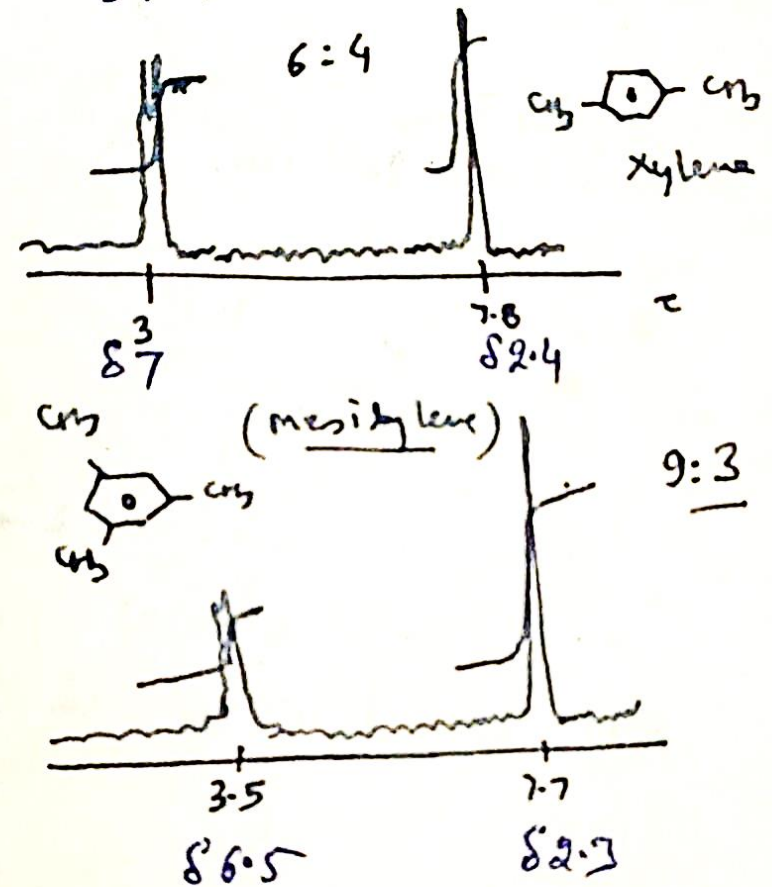 6 : 4
CH3
CH3
Xylene
3
7.8
τ
δ 7
δ 2.4
CH3
(mesitylene)
9:3
CH3
CH3
3.5
7.7
δ 6.5
δ 2.3